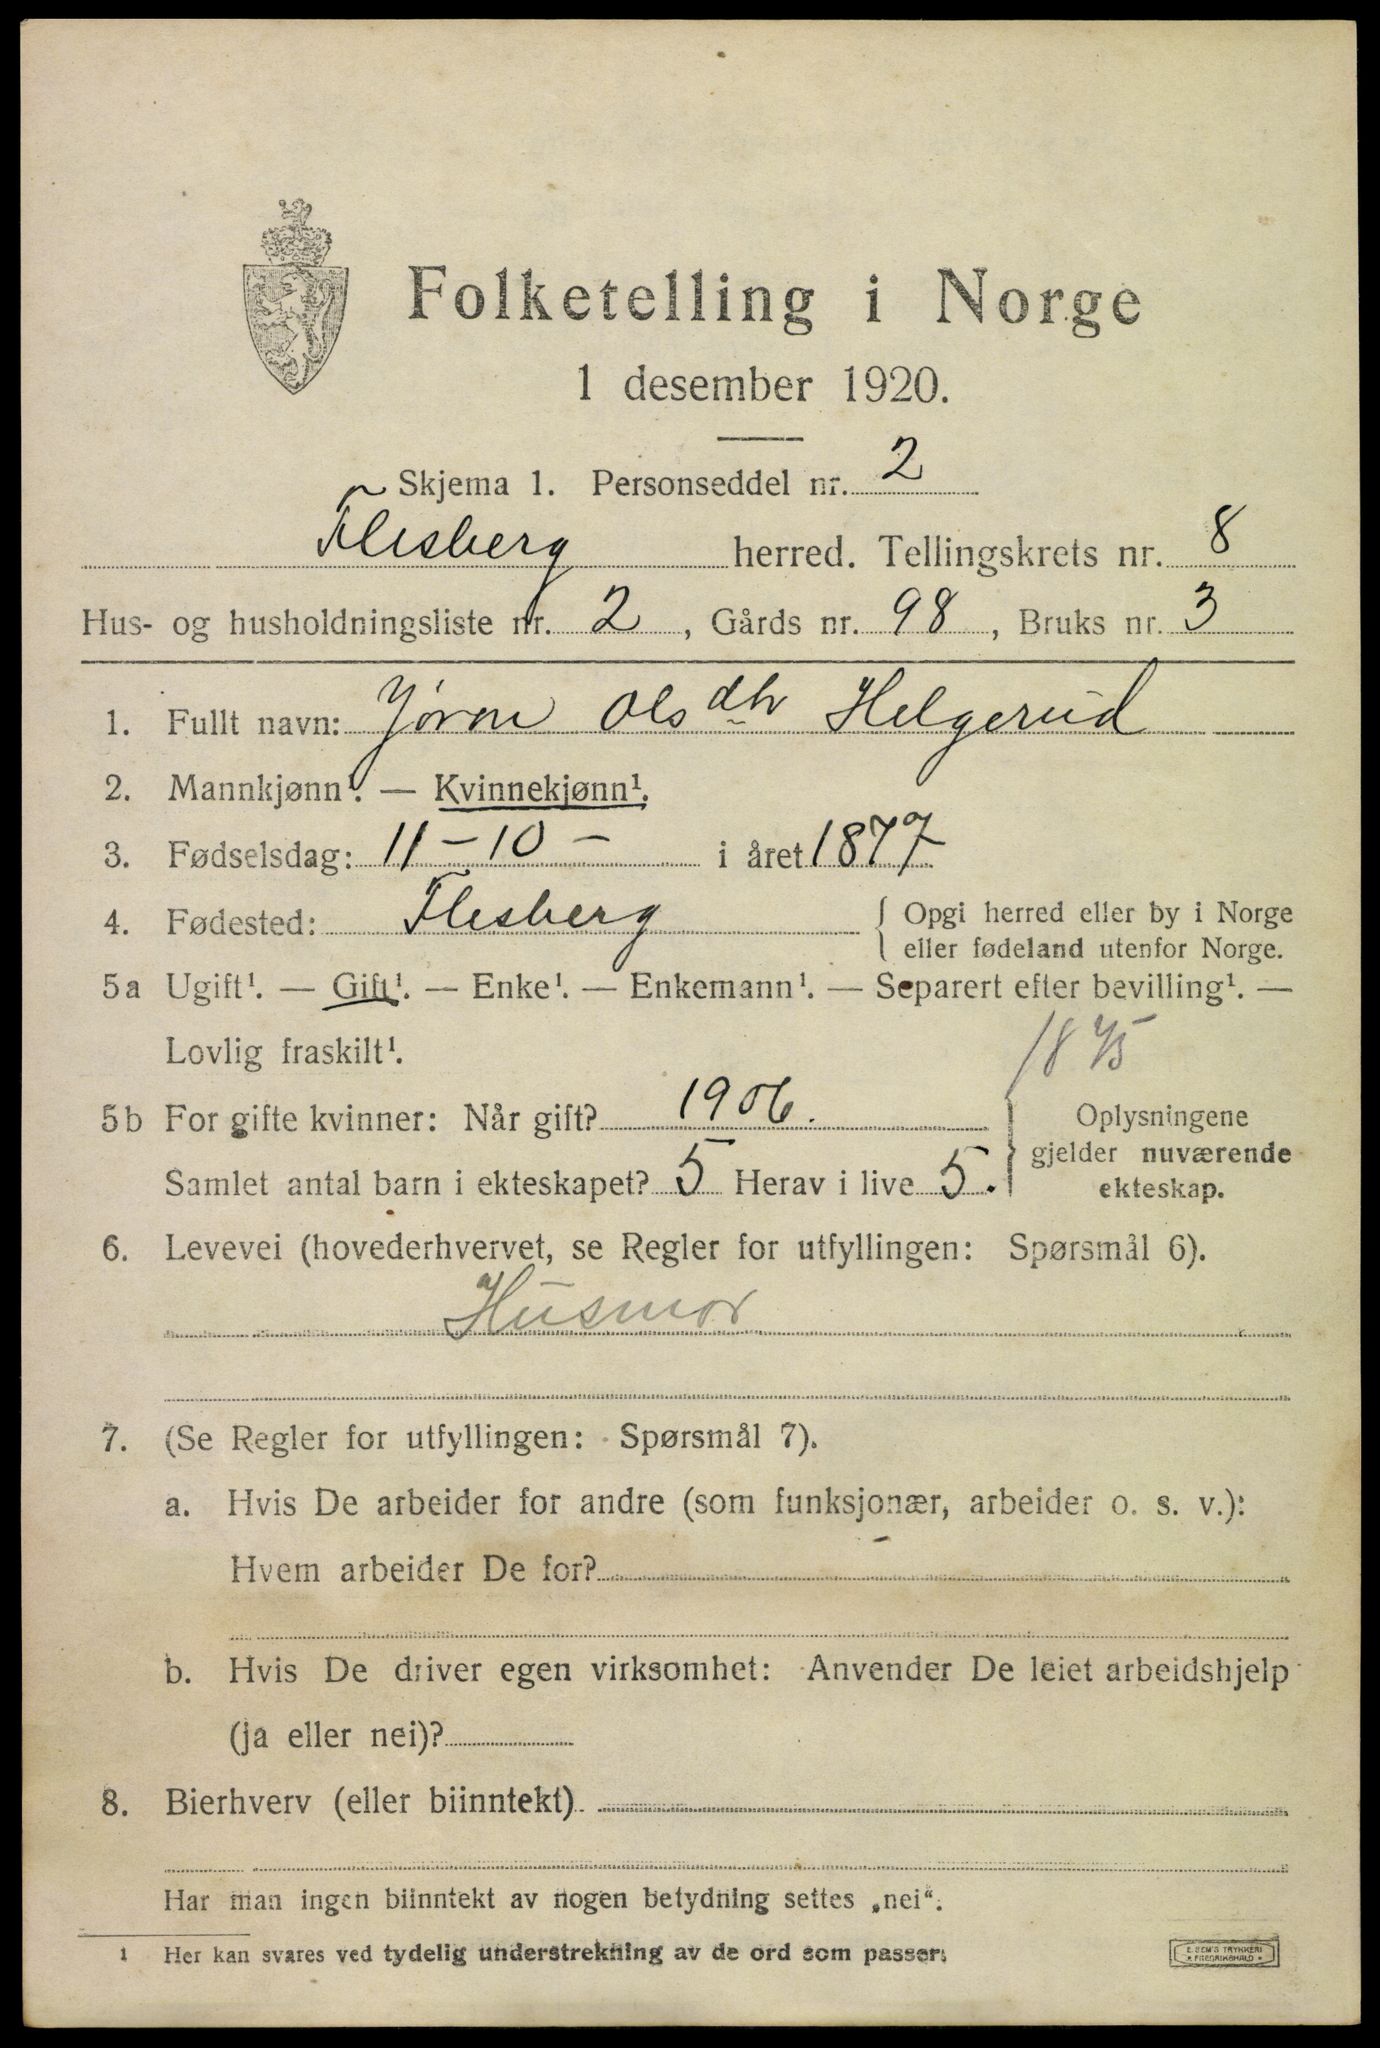 Folketelling i Norge
1 desember 1920.
Skjema 1. Personseddel nr. 2
Flesberg herred. Tellingskrets nr. 8
Hus- og husholdningsliste nr. 2, Gårds nr. 98, Bruks nr. 3
1. Fullt navn: Jøron Olsdtr Helgerud
2. Mannkjønn¹. — Kvinnekjønn¹.
3. Fødselsdag: 11-10- i året 1877
4. Fødested: Flesberg { Opgi herred eller by i Norge
eller fødeland utenfor Norge.
5a Ugift¹. — Gift¹. — Enke¹. — Enkemann¹. — Separert efter bevilling¹. —
Lovlig fraskilt¹.
1875
5b For gifte kvinner: Når gift? 1906. } Oplysningene
gjelder nuværende
Samlet antal barn i ekteskapet? 5 Herav i live 5. ekteskap.
6. Levevei (hovederhvervet, se Regler for utfyllingen: Spørsmål 6).
Husmor
7. (Se Regler for utfyllingen: Spørsmål 7).
a. Hvis De arbeider for andre (som funksjonær, arbeider o. s. v.):
Hvem arbeider De for?
b. Hvis De driver egen virksomhet: Anvender De leiet arbeidshjelp
(ja eller nei)?
8. Bierhverv (eller biinntekt)
Har man ingen biinntekt av nogen betydning settes „nei“.
1 Her kan svares ved tydelig understrekning av de ord som passer.
E. SEM'S TRYKKERI
* FREDRIKSHALD *